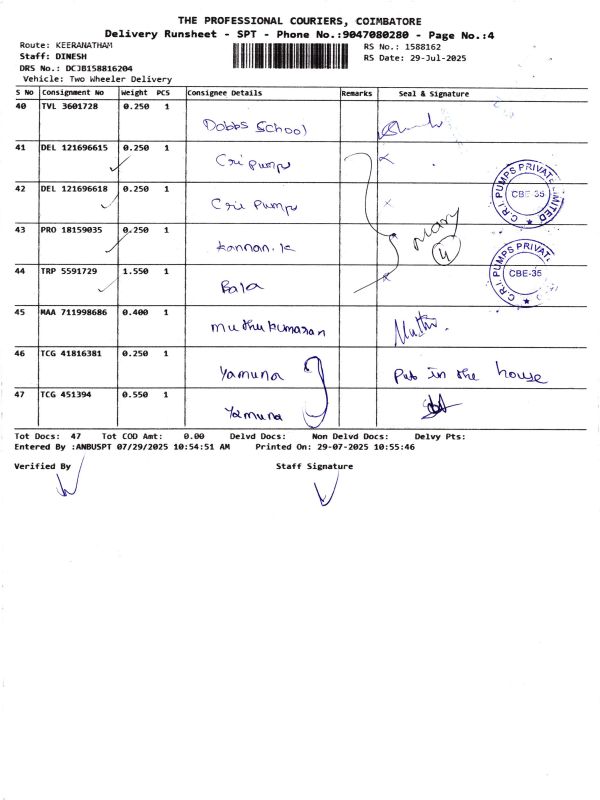 THE PROFESSIONAL COURIERS, COIMBATORE
Delivery Runsheet - SPT - Phone No.:9047080280 - Page No.:4
Route: KEERANATHAM RS No.: 1588162
Staff: DINESH RS Date: 29-Jul-2025
DRS No.: DCJB158816204
Vehicle: Two Wheeler Delivery
S No Consignment No Weight PCS Consignee Details Remarks Seal & Signature
40 TVL 3601728 0.250 1
Dobbs School
41 DEL 121696615 0.250 1
Cri pumps
42 DEL 121696618 0.250 1
Cri Pumps
43 PRO 18159035 0.250 1
Kannan.k
44 TRP 5591729 1.550 1
Bala
4
C.R.I. PUMPS PRIVATE LIMITED
CBE-35
C.R.I. PUMPS PRIVATE
CBE-35
45 MAA 711998686 0.400 1
Muthukumaran Muthu.
46 TCG 41816381 0.250 1
Yamuna Put in the house
47 TCG 451394 0.550 1
Yamuna
Tot Docs: 47 Tot COD Amt: 0.00 Delvd Docs: Non Delvd Docs: Delvy Pts:
Entered By :ANBUSPT 07/29/2025 10:54:51 AM Printed On: 29-07-2025 10:55:46
Verified By Staff Signature